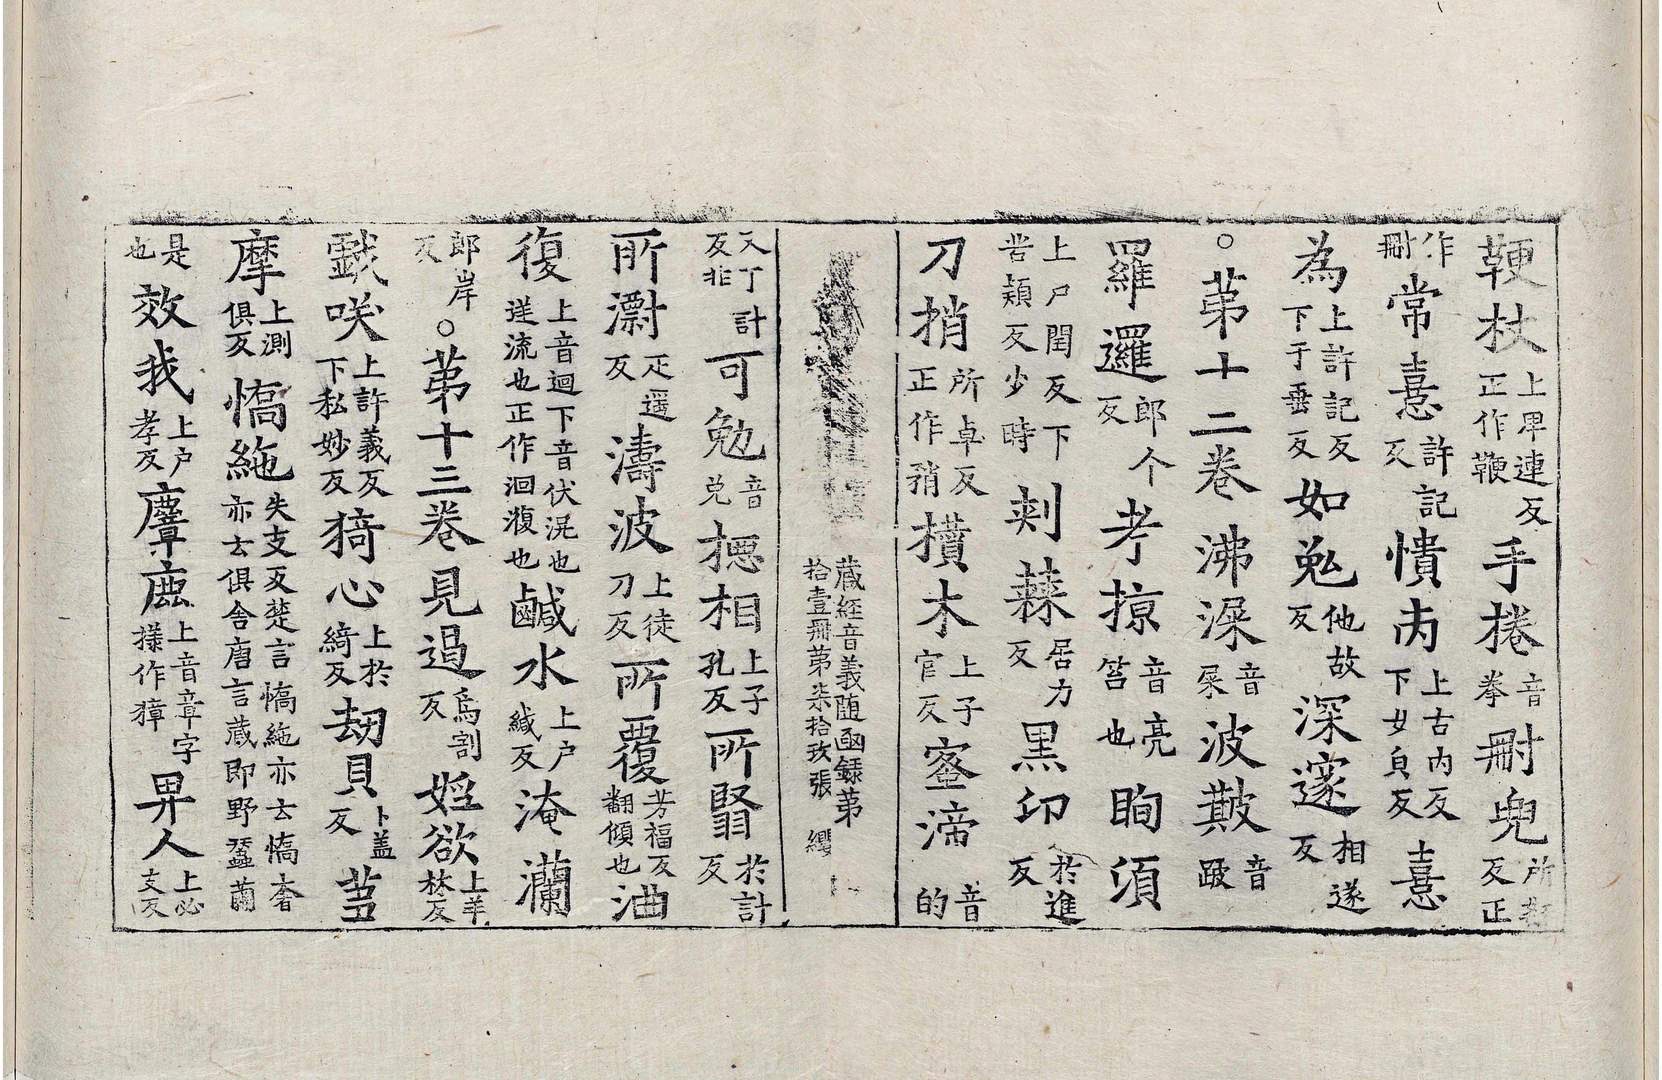 鞕杖上卑連反正作鞭手捲音拳𠜂兜所
作𠜂常憙許記反憒𠕂上古内反下女皃反憙
為上許記反下于垂反如兎他故反深邃相遂反
○苐十二卷沸深音㞘波𢿏音跛
羅邏郎个反考掠音亮笞也眴須
上尸閏反下尝頴反少時刾蕀居力反黒印於進反
刀捎所卓反正作矟櫕木上子官反蜜渧音的
藏經音義随函録苐
拾壹冊苐柒拾玫張 纓
又丁計反非可勉音兑揌相上子孔反所翳於計反
所澍疋遥反濤波上徒刀反所覆芳福反翻傾也油
復上音迴下音伏洸也逆流也正作洄澓也鹹水上户緘反淹瀾
郎岸反○苐十三卷見過烏割反婬欲上羊林反
戯咲上許義反下私妙反猗心上於綺反劫貝卜盖反荎
摩上測俱反憍絁失支反楚言憍絁亦云憍奢亦云俱舎唐言蔵即野蚕繭
是也效我上户孝反麞鹿上音章字㨾作獐畀人上必支反